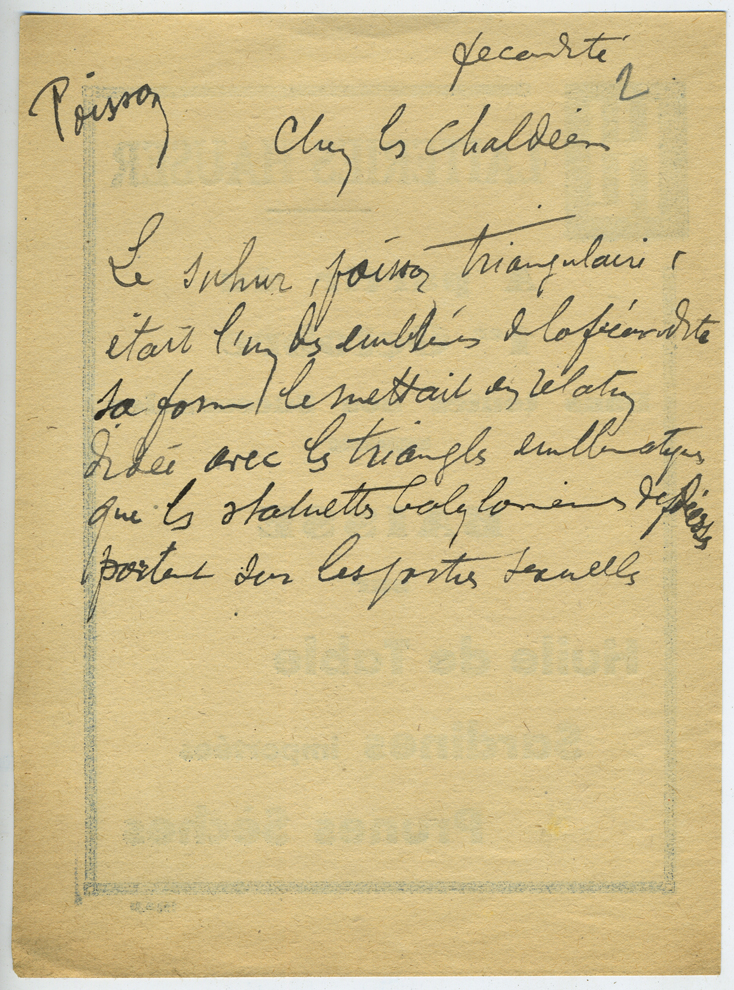 fecondité
2
Poisson
Chez les Chaldéens
Le suhur, poisson triangulaire,
était l'un des emblèmes de la fécondité
sa forme le mettait en relation
d'idée avec les triangles emblématiques
que les statuettes babyloniennes de pierre
portent sur les parties sexuelles
Huile de Table
Sardines